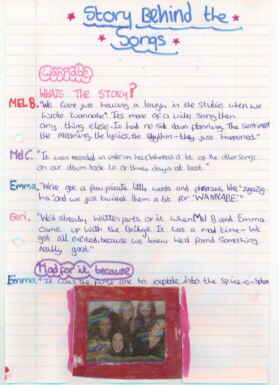 Story Behind the
Songs
WHATS THE STORY?
MEL B. "We were just having a laugh in the studio when we
wrote wannabe". Its more of a vibe song then
any thing else. It had no sit down planning. The
the meaning, the lyrics, the rhythm - they just happened."
Mel C. "It was recorded in under an hour, whereas all the other songs
on our album took two or three days at least."
Emma. "We've got a few private little words and phrases like 'zigazig
ha' and we just bunked them a bit for 'WANNABE'"
Geri. "We'd already written parts of it when Mel B and Emma
came up with the It was a mad time - We
got all excited because we knew we'd found something
really good."
Mad for it, because
Emma. "It was the first one to explode into the spice-o-sphere